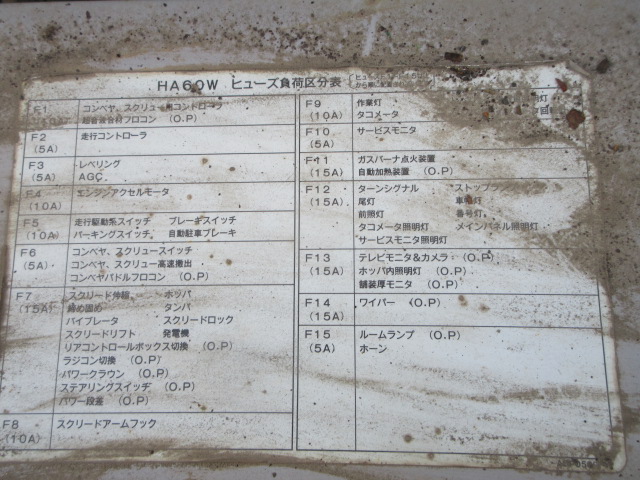 HA60W ヒューズ負荷区分表
F1 コンベヤ、スクリュー用コントローラ
(10A) 超音波合材フロコン (O.P)
F2 走行コントローラ
(5A)
F3 レベリング
(5A) AGC
F4 エンジンアクセルモータ
(10A)
F5 走行駆動系スイッチ ブレーキスイッチ
(10A) パーキングスイッチ 自動駐車ブレーキ
F6 コンベヤ、スクリュースイッチ
(5A) コンベヤ、スクリュー高速搬出
コンベヤパドルフロコン (O.P)
F7 スクリード伸縮 ホッパ
(15A) 締め固め タンパ
バイブレータ スクリードロック
スクリードリフト 発電機
リアコントロールボックス切換 (O.P)
ラジコン切換 (O.P)
パワークラウン (O.P)
ステアリングスイッチ (O.P)
パワー段差 (O.P)
F8 スクリードアームフック
(10A)
F9 作業灯
(10A) タコメータ
F10 サービスモニタ
(5A)
F11 ガスバーナ点火装置
(15A) 自動加熱装置 (O.P)
F12 ターンシグナル
(15A) 尾灯
前照灯 番号灯
タコメータ照明灯 メインパネル照明灯
サービスモニタ照明灯
F13 テレビモニタ&カメラ (O.P)
(15A) ホッパ内照明灯 (O.P)
舗装厚モニタ (O.P)
F14 ワイパー (O.P)
(15A)
F15 ルームランプ (O.P)
(5A) ホーン